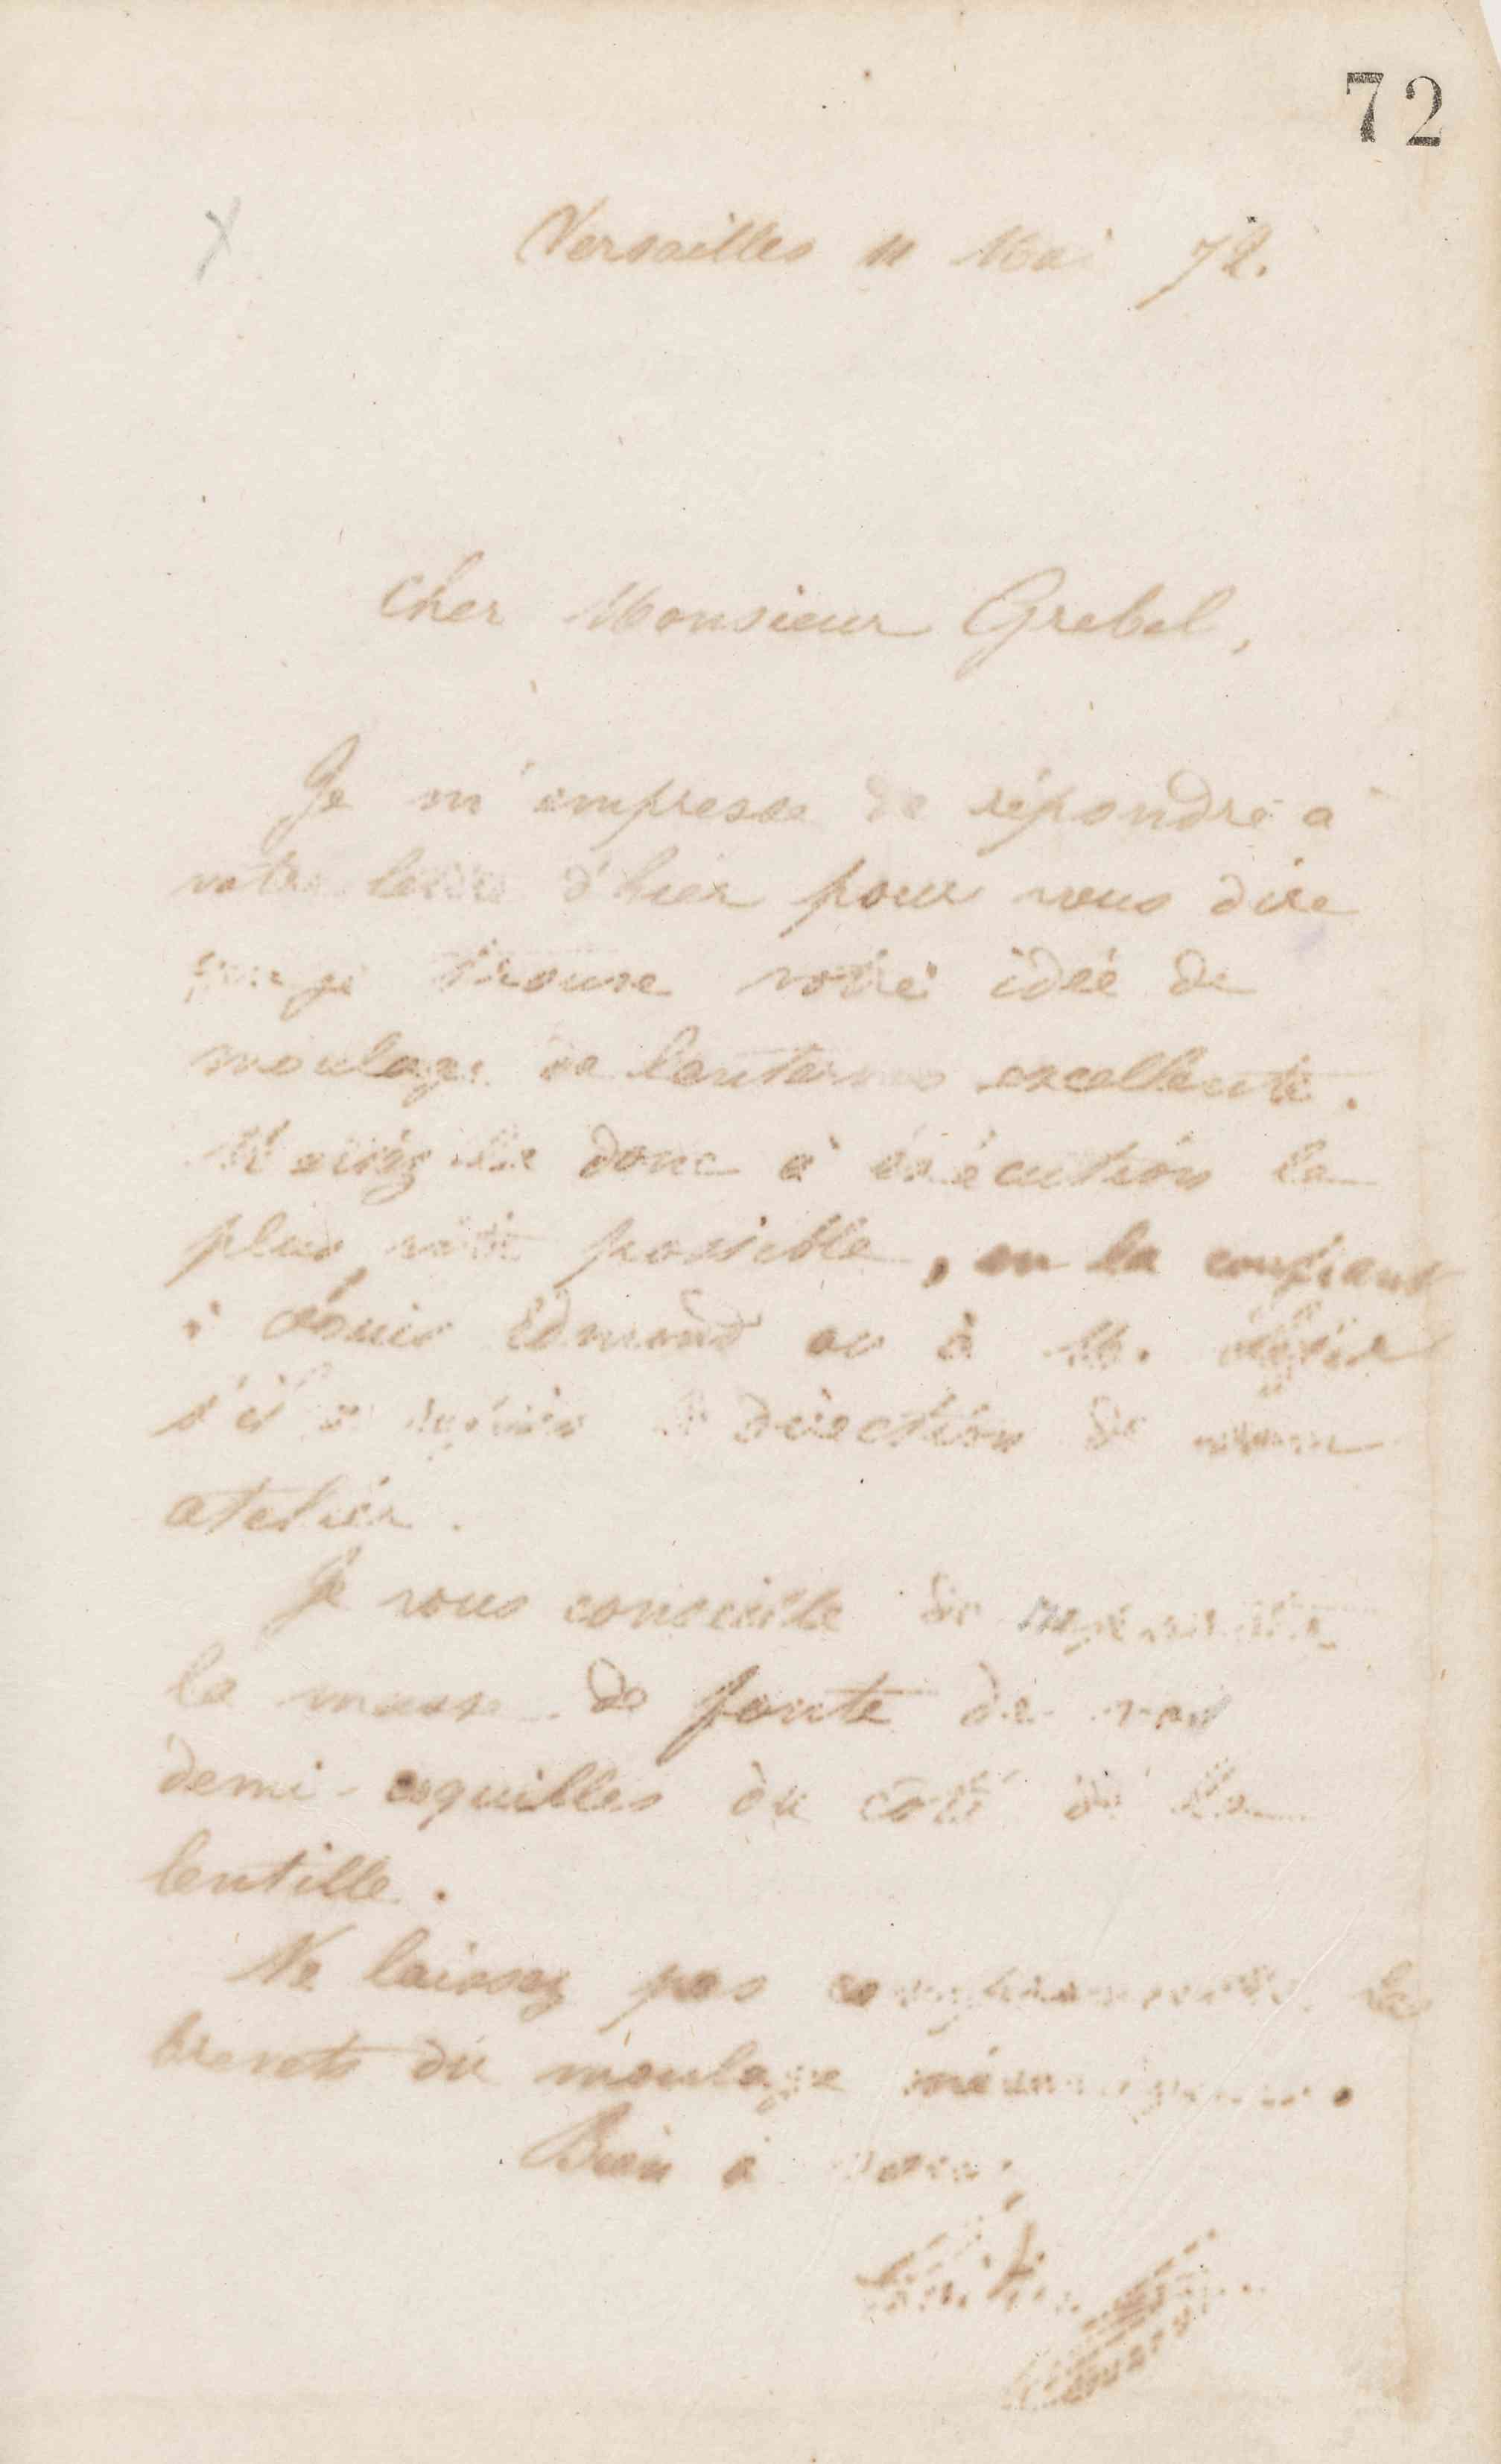 72
Versailles 11 Mai 72.
Cher Monsieur Grebel,
Je m'empresse de répondre à
votre lettre d'hier pour vous dire
que je trouve votre idée de
moulage de lanternes excellente.
donc à exécution le
plus vite possible, en la confiant
à Louis Edmond ou à M.
s'il a direction de
atelier.
Je vous conseille de
la masse de fonte de vos
demi-coquilles du coté de la
lentille.
Ne laissez pas les
brevets du moulage
Bien à vous,